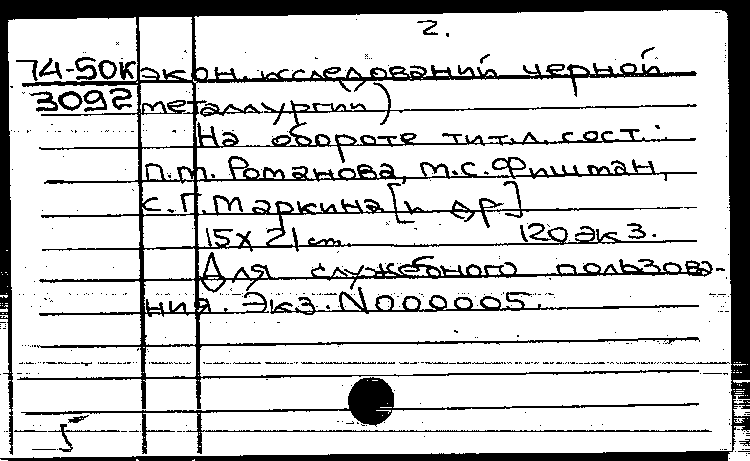 2.
74-50К экон. исследований черной
3092 металлургии)
На обороте тит.л. сост.:
П.М. Романова, М.С. Фиштан,
С.Г. Маркина [и др]
15х21 cm. 120 экз.
Для служебного пользова-
ния. Экз. N000005.